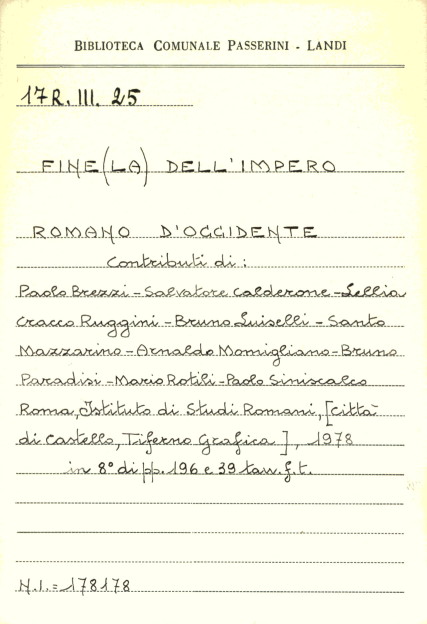 BIBLIOTECA COMUNALE PASSERINI - LANDI
17R. III. 25
FINE(LA) DELL'IMPERO
ROMANO D'OCCIDENTE
Contributi di :
Paolo Brezzi - Salvatore Calderone - Lellia
Cracco Ruggini - Bruno Luiselli - Santo
Mazzarino - Arnaldo Momigliano - Bruno
Paradisi - Mario Rotili - Paolo Siniscalco
Roma, Istituto di Studi Romani, [Città
di Castello, Tiferno Grafica ], 1978
in 8° di pp. 196 e 39 tav. f.t.
N.I. = 178178